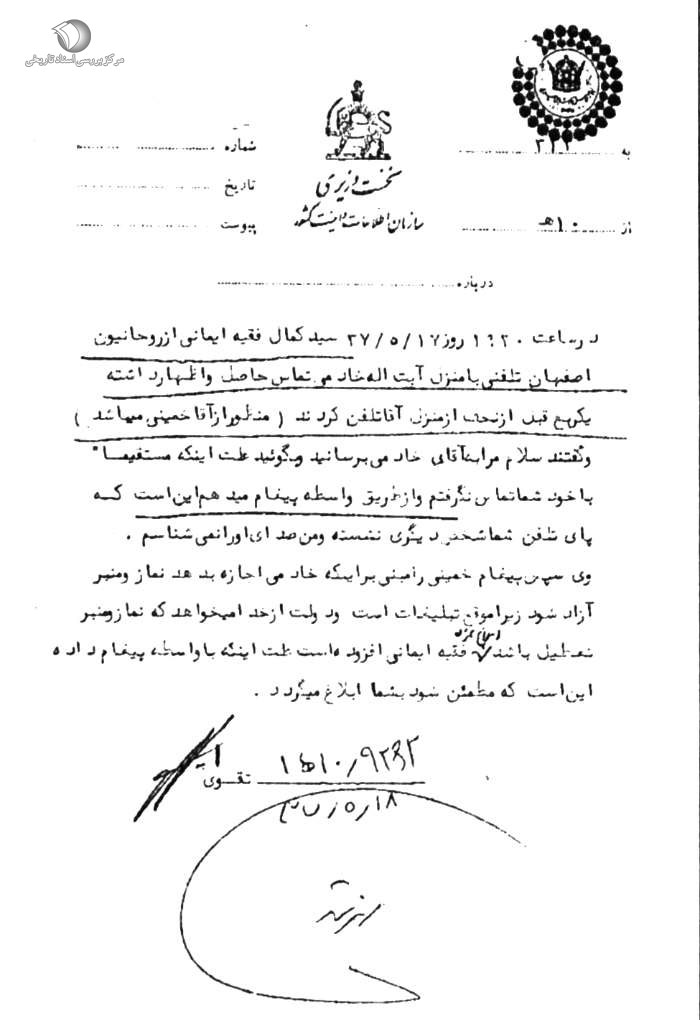 مرکز بررسی اسناد تاریخی
به ۳۱۲
شماره
نخست وزیری
تاریخ
سازمان اطلاعات و امنیت کشور
از ۱۰هـ
پیوست
درباره
در ساعت ۱۹۲۰ روز ۳۷/۵/۱۷ سید کمال فقیه ایمانی از روحانیون
اصفهان تلفنی با منزل آیت اله خادمی تماس حاصل و اظهار داشته
یکربع قبل از نجف از منزل آقا تلفن کردند ( منظور از آقا خمینی میباشد )
و گفتند سلام مرا به آقای خادمی برسانید و بگوئید علت اینکه مستقیما"
با خود شما تماس نگرفتم و از طریق واسطه پیغام میدهم این است که
پای تلفن شما شخص دیگری نشسته و من صدای او را نمی شناسم .
وی سپس پیغام خمینی را مبنی بر اینکه خادمی اجازه بدهد نماز و منبر
آزاد شود زیرا موقع تبلیغات است و دولت از خدا میخواهد که نماز و منبر
تعطیل باشد فقیه ایمانی افزوده است علت اینکه با واسطه پیغام داده
این است که مطمئن شود بشما ابلاغ میگردد .
تقوی
۳۷/۵/۱۸